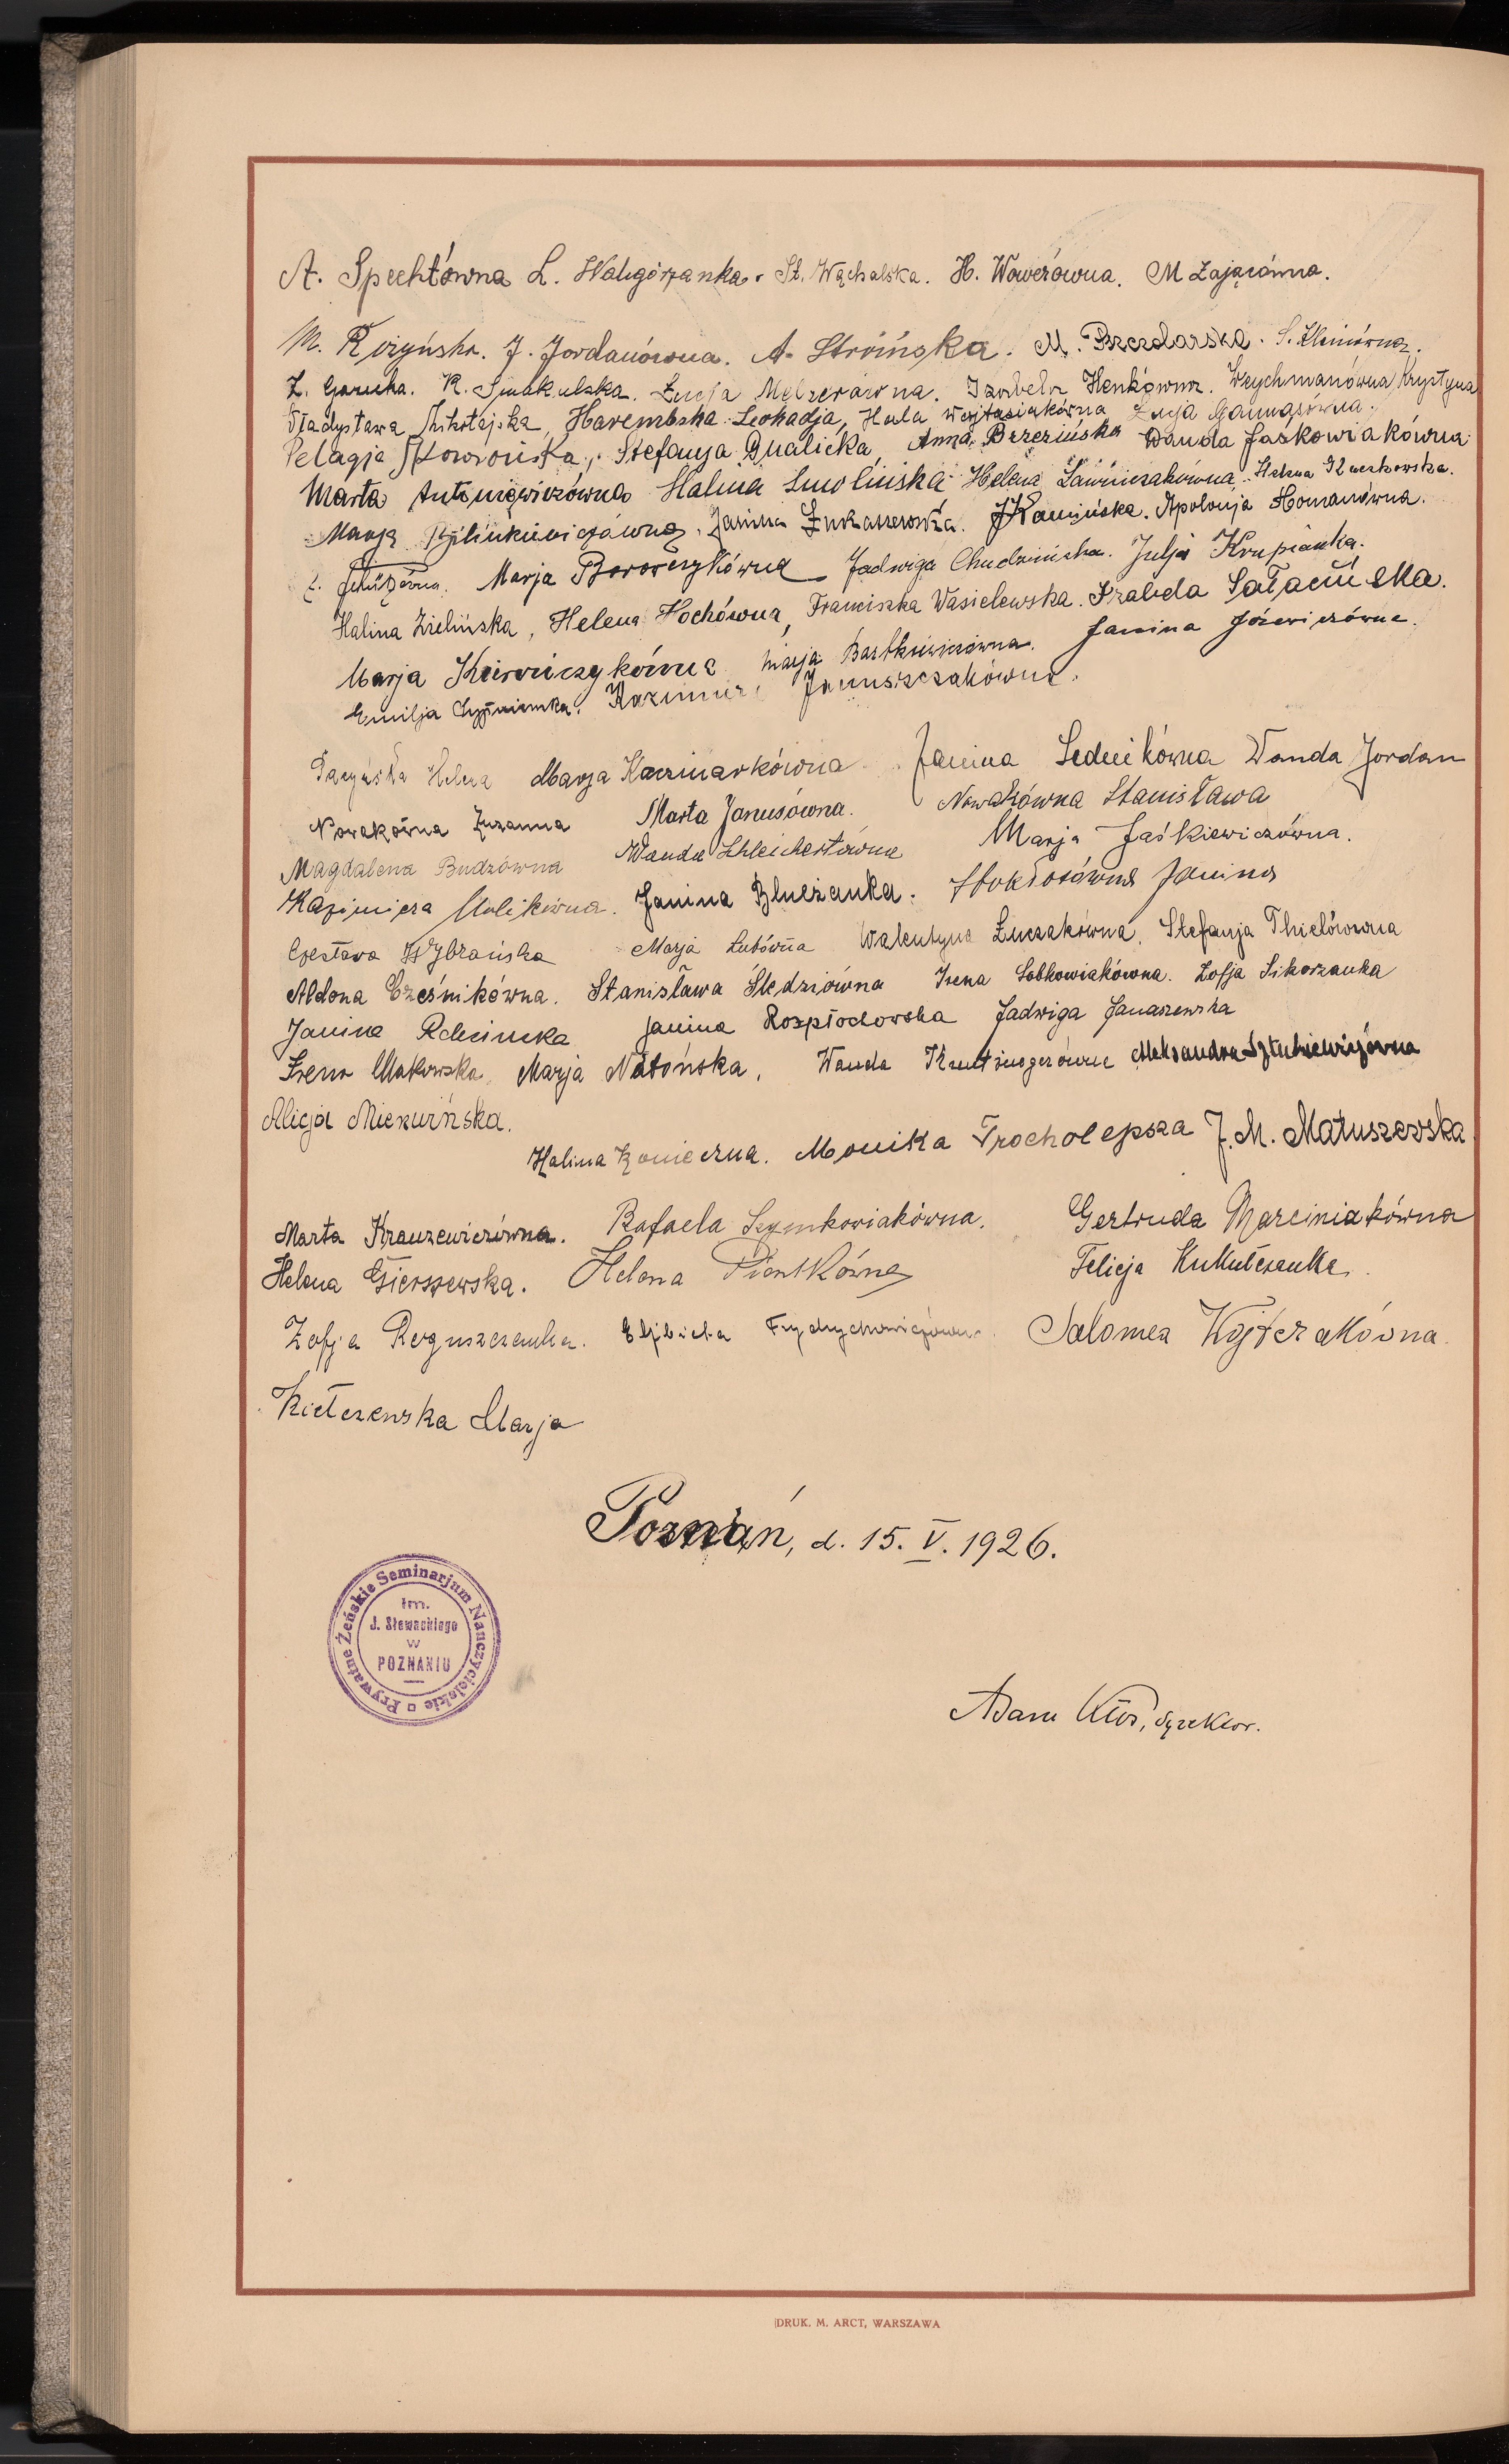 A. Spechtówna L. Waligórzanka. St. Wąchalska. H. Wowerówna. M Zającówna.
M. Rożyńska. J. Jordanówna. A. Stroińska. M. Brzezdarska. S. Kleinówna.
Z. K. Smakulska. Łucja Melzerówna. Izabela Henkówna. Weychmanówna Krystyna
Władysława Mikołajska, Harembska Leokadja, Hala Wojtasiakówna Łucja
Pelagja Stefanja Gnalicka, Anna Brzezińska Wanda Jaśkowiakówna
Marta Antoniewiczówna Halina Smolińska Helena Ławniczakówna. Helena
Marja Janina Łukaszewska. J Kamińska. Apolonja Homanówna.
Marja Borowczykówna Jadwiga Chudzińska. Julja Krupianka.
Halina Zielińska, Helena Hochówna, Franciszka Wasielewska. Izabela Sałacińska.
Marja Krawczykówna Marja Bartkiewiczówna. Janina Józewiczówna.
Emilja Kazimiera Januszczakówna.
Helena Marja Kaczmarkówna Janina Lednikówna Wanda Jordan
Nowakówna Zuzanna Marta Janusówna. Nowakówna Stanisława
Magdalena Budzówna Wanda Schleichertówna Marja Jaśkiewiczówna.
Kazimiera Janina Bluczanka. Stokłosówna Janina
Czesława Wybrańska Marja Lutówna Walentyna Łuczakówna. Stefanja Thielówna
Aldona Cześnikówna. Stanisława Śledziówna Irena Sobkowiakówna. Zofja Sikorzanka
Janina Janina Rozpłochowska Jadwiga Janaszewska
Irena Makowska, Marja Natońska, Wanda Aleksandra
Alicja Miekuńska.
Halina Konieczna. Monika Trocholepsza J. M. Matuszewska
Marta Krauzewiczówna. Rafaela Szymkowiakówna. Gertruda Marciniakówna
Helena Gierszewska. Helena Piontkówna Felicja Kukulczanka.
Zofja Roguszczanka. Elżbieta Frydrychowiczówna. Salomea Wojtczakówna.
Kiełczewska Marja
Poznań, d. 15. V. 1926.
Prywatne Żeńskie Seminarjum Nauczycielskie
im.
J. Słowackiego
w
POZNANIU
Adam Kłos, dyrektor.
DRUK. M. ARCT, WARSZAWA